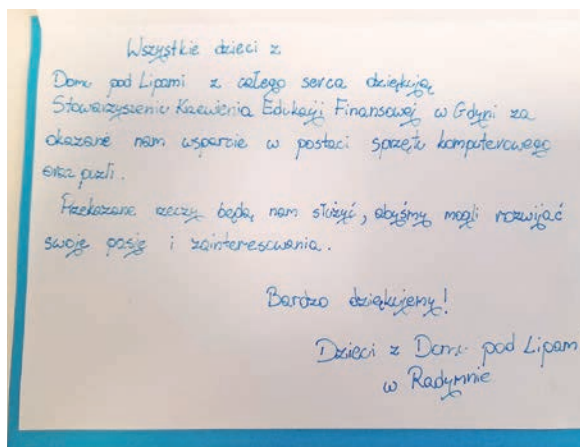 Wszystkie dzieci z
Domu pod Lipami z całego serca dziękują
Stowarzyszeniu Krzewienia Edukacji Finansowej w Gdyni za
okazane nam wsparcie w postaci sprzętu komputerowego
oraz puzli.
Przekazane rzeczy będą nam służyć, abyśmy mogli rozwijać
swoje pasje i zainteresowania.
Bardzo dziękujemy!
Dzieci z Domu pod Lipam
w Radymnie